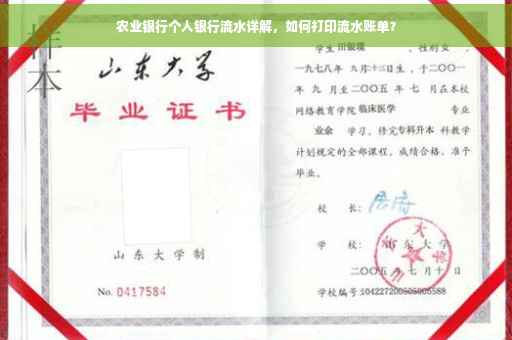 农业银行个人银行流水详解，如何打印流水账单？
样本
山东大学
毕业证书
山东大学制
No. 0417584
学生田银瑞，性别女，
一九七八年九月十三日生，于二〇〇一
年九月至二〇〇五年七月在本校
网络教育学院临床医学专业
业余学习，修完专科升本科教学
计划规定的全部课程，成绩合格，准予
毕业。
校长：
学校：山东大学
二〇〇五年七月十日
学校编号：